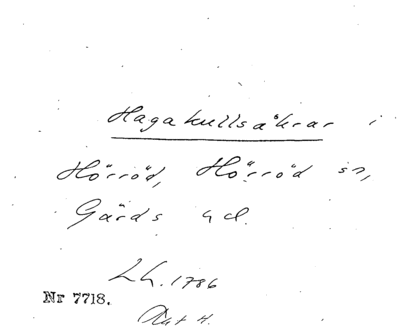 Hagakullsåkrar i
Hörröd, Hörröd sn,
Gärds hd.
Lh. 1786
Nr 7718.